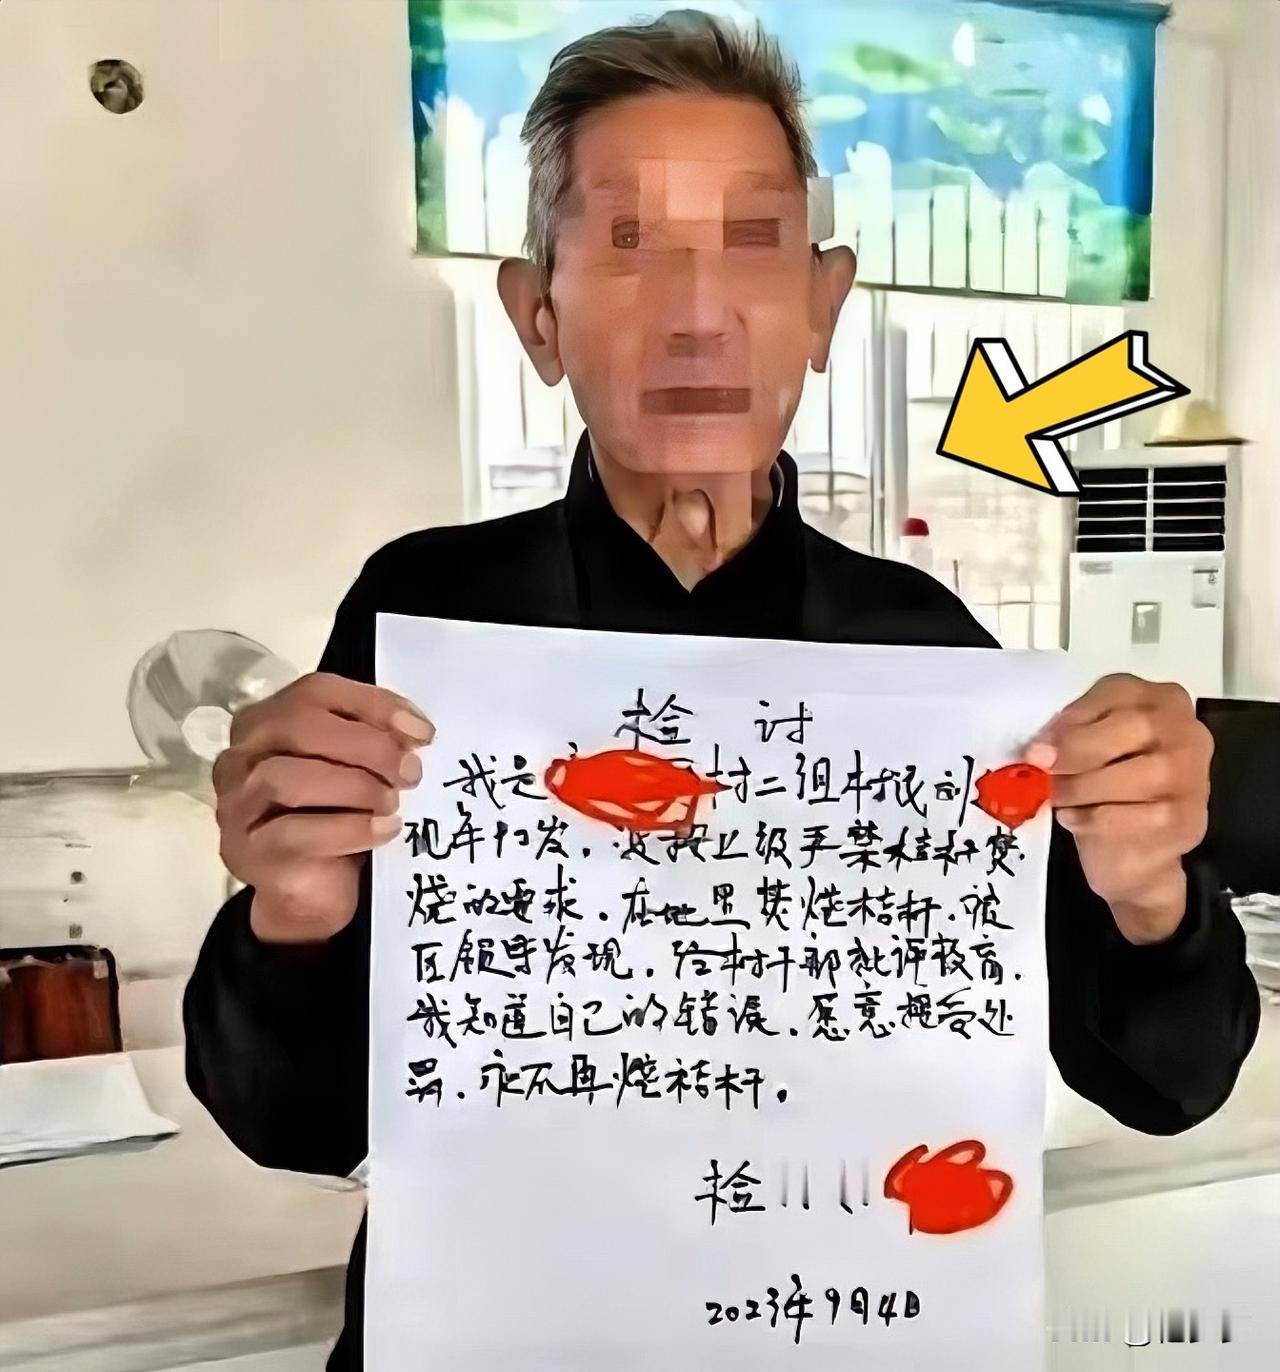 检 讨
我是 村二组村民刘
现年 岁，没按上级严禁桔杆焚
烧的要求，在地里焚烧桔杆，被
区领导发现，给村干部批评教育，
我知道自己的错误，愿意接受处
罚，永不再烧桔杆。
检
2023年9月4日